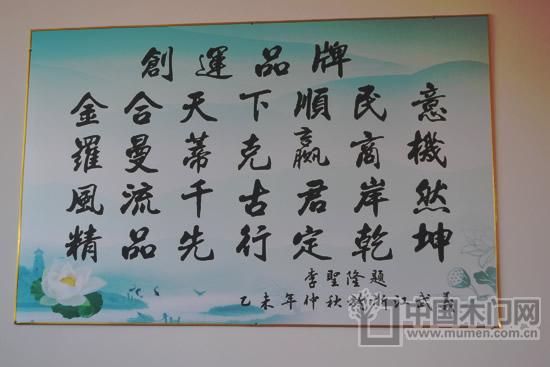 創運品牌
金合天下順民意
羅曼蒂克贏商機
風流千古君岸然
精品先行定乾坤
李聖隆題
乙未年仲秋於浙江武義
中国木门网
www.mumen.com.cn